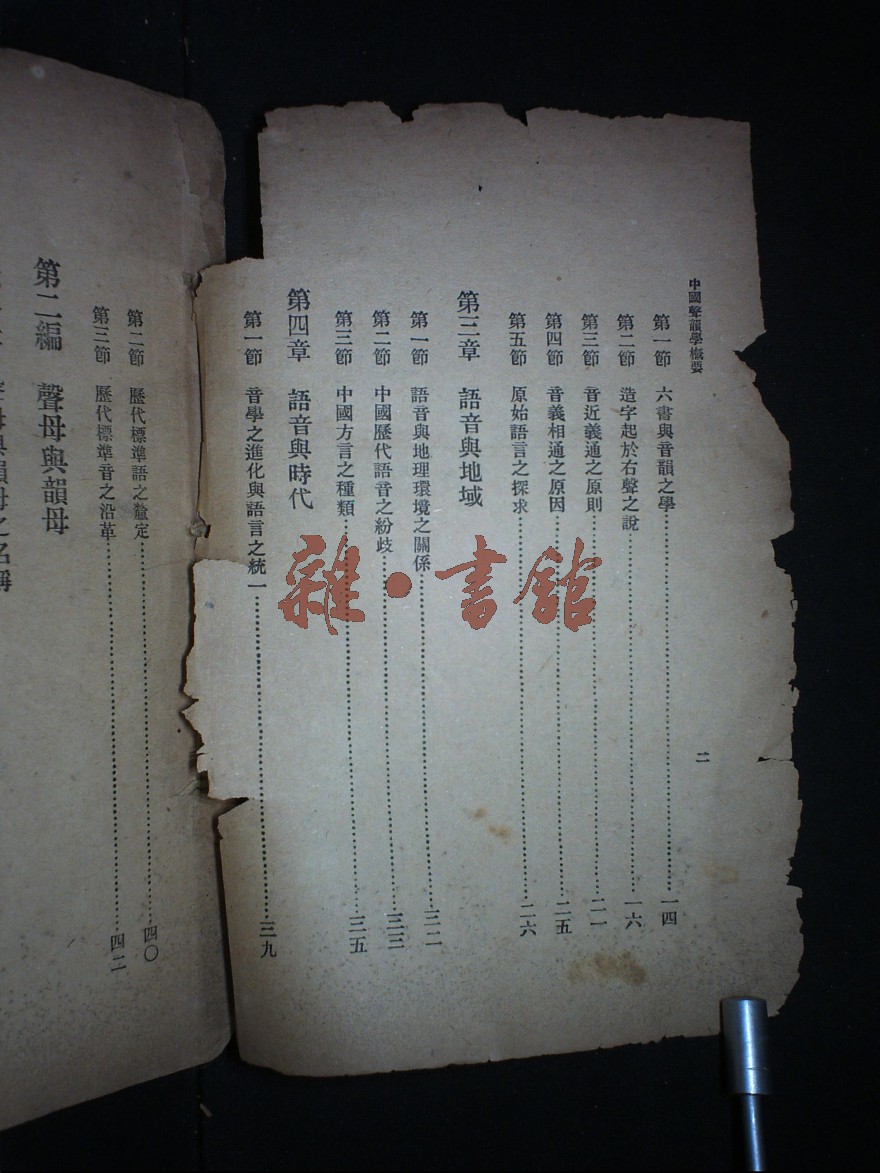 中國聲韻學概要
二
第一節 六書與音韻之學……一四
第二節 造字起於右聲之說……一六
第三節 音近義通之原則……二一
第四節 音義相通之原因……二五
第五節 原始語言之探求……二六
第三章 語音與地域
第一節 語音與地理環境之關係……三二
第二節 中國歷代語音之紛歧……三三
第三節 中國方言之種類……三五
第四章 語音與時代
第一節 音學之進化與語言之統一……三九
第二節 歷代標準語之釐定……四〇
第三節 歷代標準音之沿革……四二
第二編 聲母與韻母
聲母與韻母之名稱
雜·書館